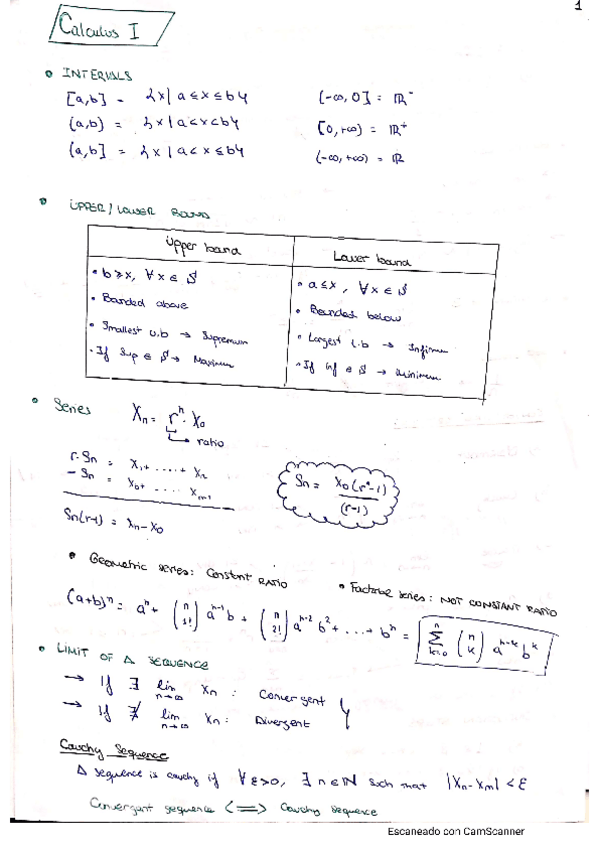 1
Calculus I
• INTERVALS
[a,b] = {x | a ≤ x ≤ b}
(-∞, 0] = ℝ⁻
(a,b) = {x | a < x < b}
[0, +∞) = ℝ⁺
(a,b] = {x | a < x ≤ b}
(-∞, +∞) = ℝ
• UPPER / LOWER BOUND
Upper bound
Lower bound
• b ≥ x, ∀x ∈ S
• a ≤ x, ∀x ∈ S
• Bounded above
• Bounded below
• Smallest u.b → Supremum
• Largest l.b → Infimum
• If Sup ∈ S → Maximum
• If inf ∈ S → Minimum
• Series
Xn = rⁿ · X₀
ratio
r·Sn = X₁ + ..... + Xn
- Sn = X₀ + ..... Xn-1
Sn(r-1) = Xn - X₀
Sn = X₀(rⁿ-1) / (r-1)
• Geometric series: Constant RATIO
• Factorial series: NOT CONSTANT RATIO
(a+b)ⁿ = aⁿ + (n 1!) aⁿ⁻¹ b + (n 2!) aⁿ⁻² b² + ... + bⁿ = Σ k=0 n (n k) aⁿ⁻ᵏ bᵏ
• LIMIT OF A SEQUENCE
→ If ∃ lim n→∞ Xn : Convergent
→ If ∄ lim n→∞ Xn : Divergent
Cauchy Sequence
A sequence is cauchy if ∀ε>0, ∃ n ∈ ℕ such that |Xn - Xm| < ε
Convergent sequence ⟺ Cauchy sequence
Escaneado con CamScanner